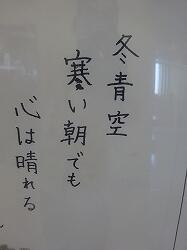 冬青空
寒い朝でも
心は晴れる